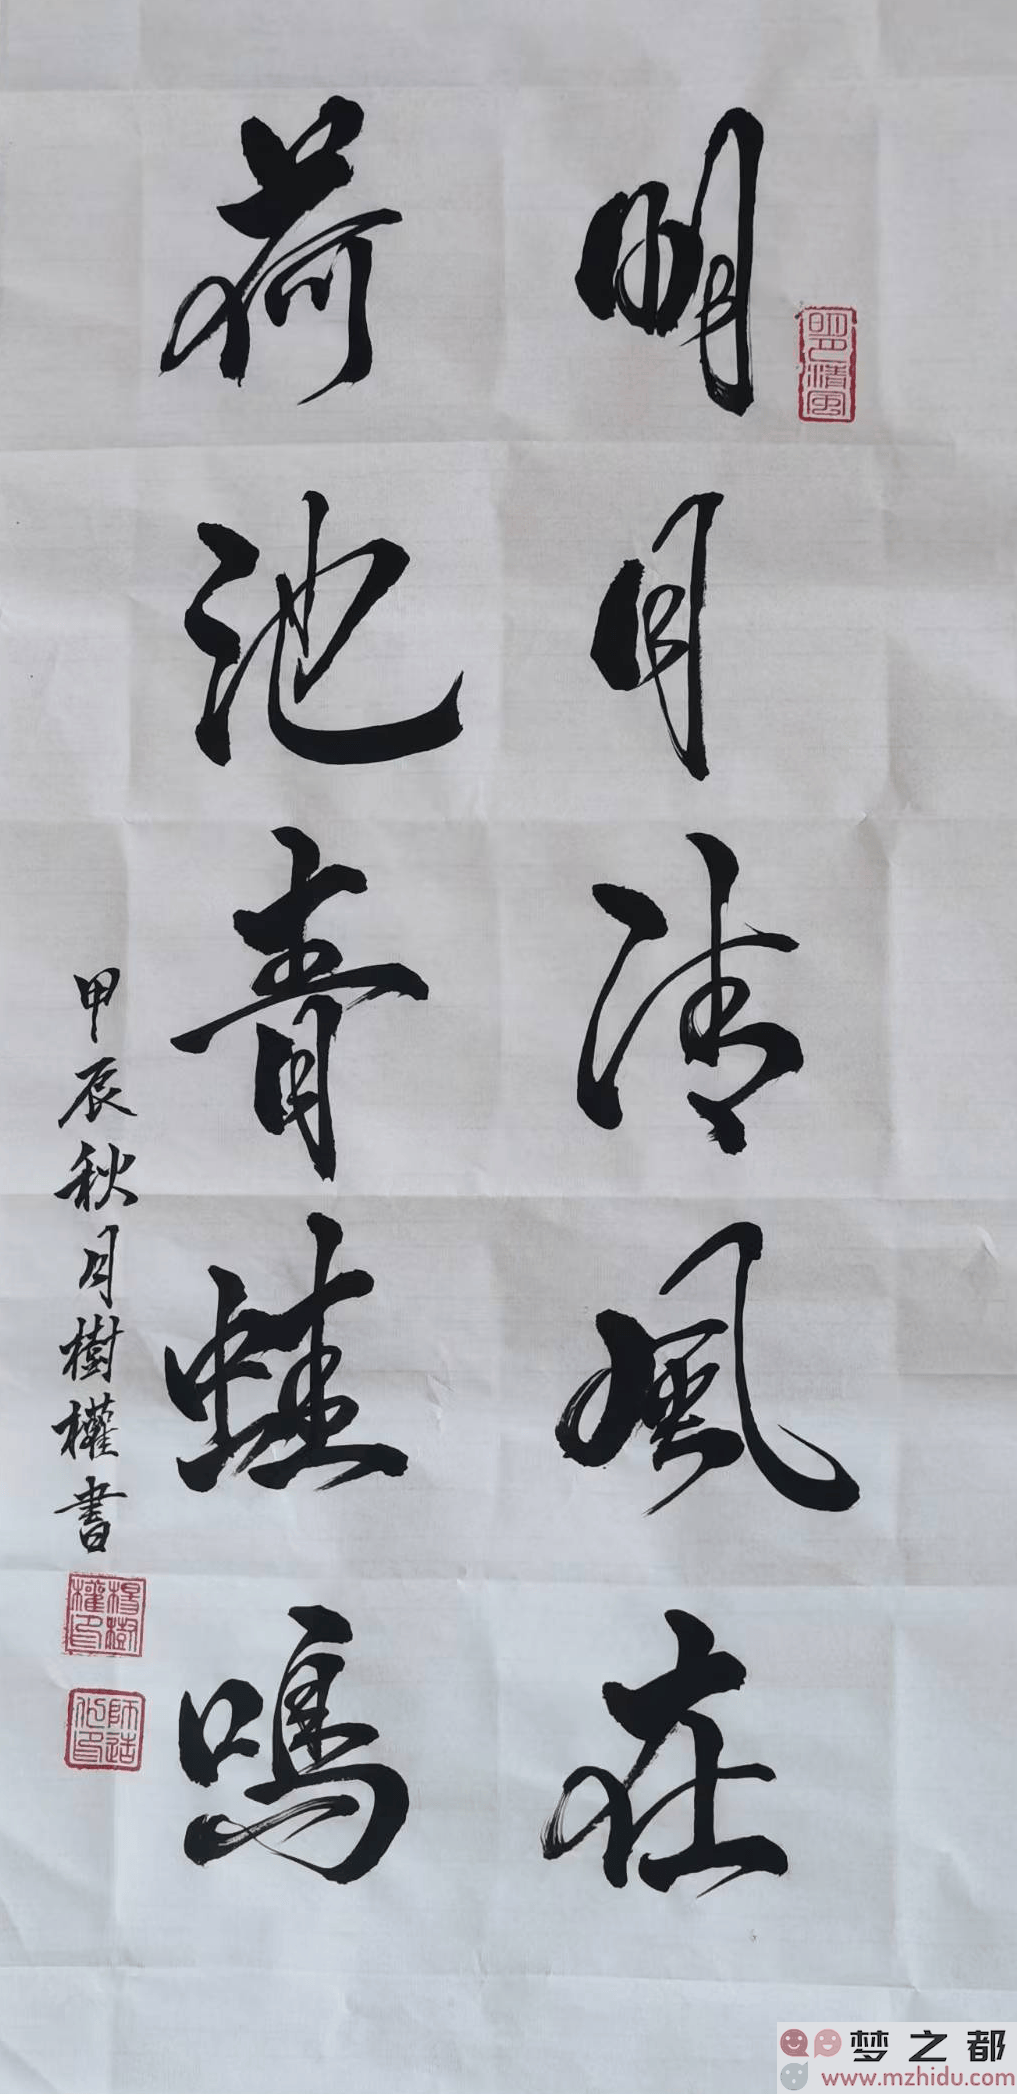 明月清風在
荷池青蛙鳴
甲辰秋月樹權書
楊樹權印
師造化
梦之都
www.mzhidu.com